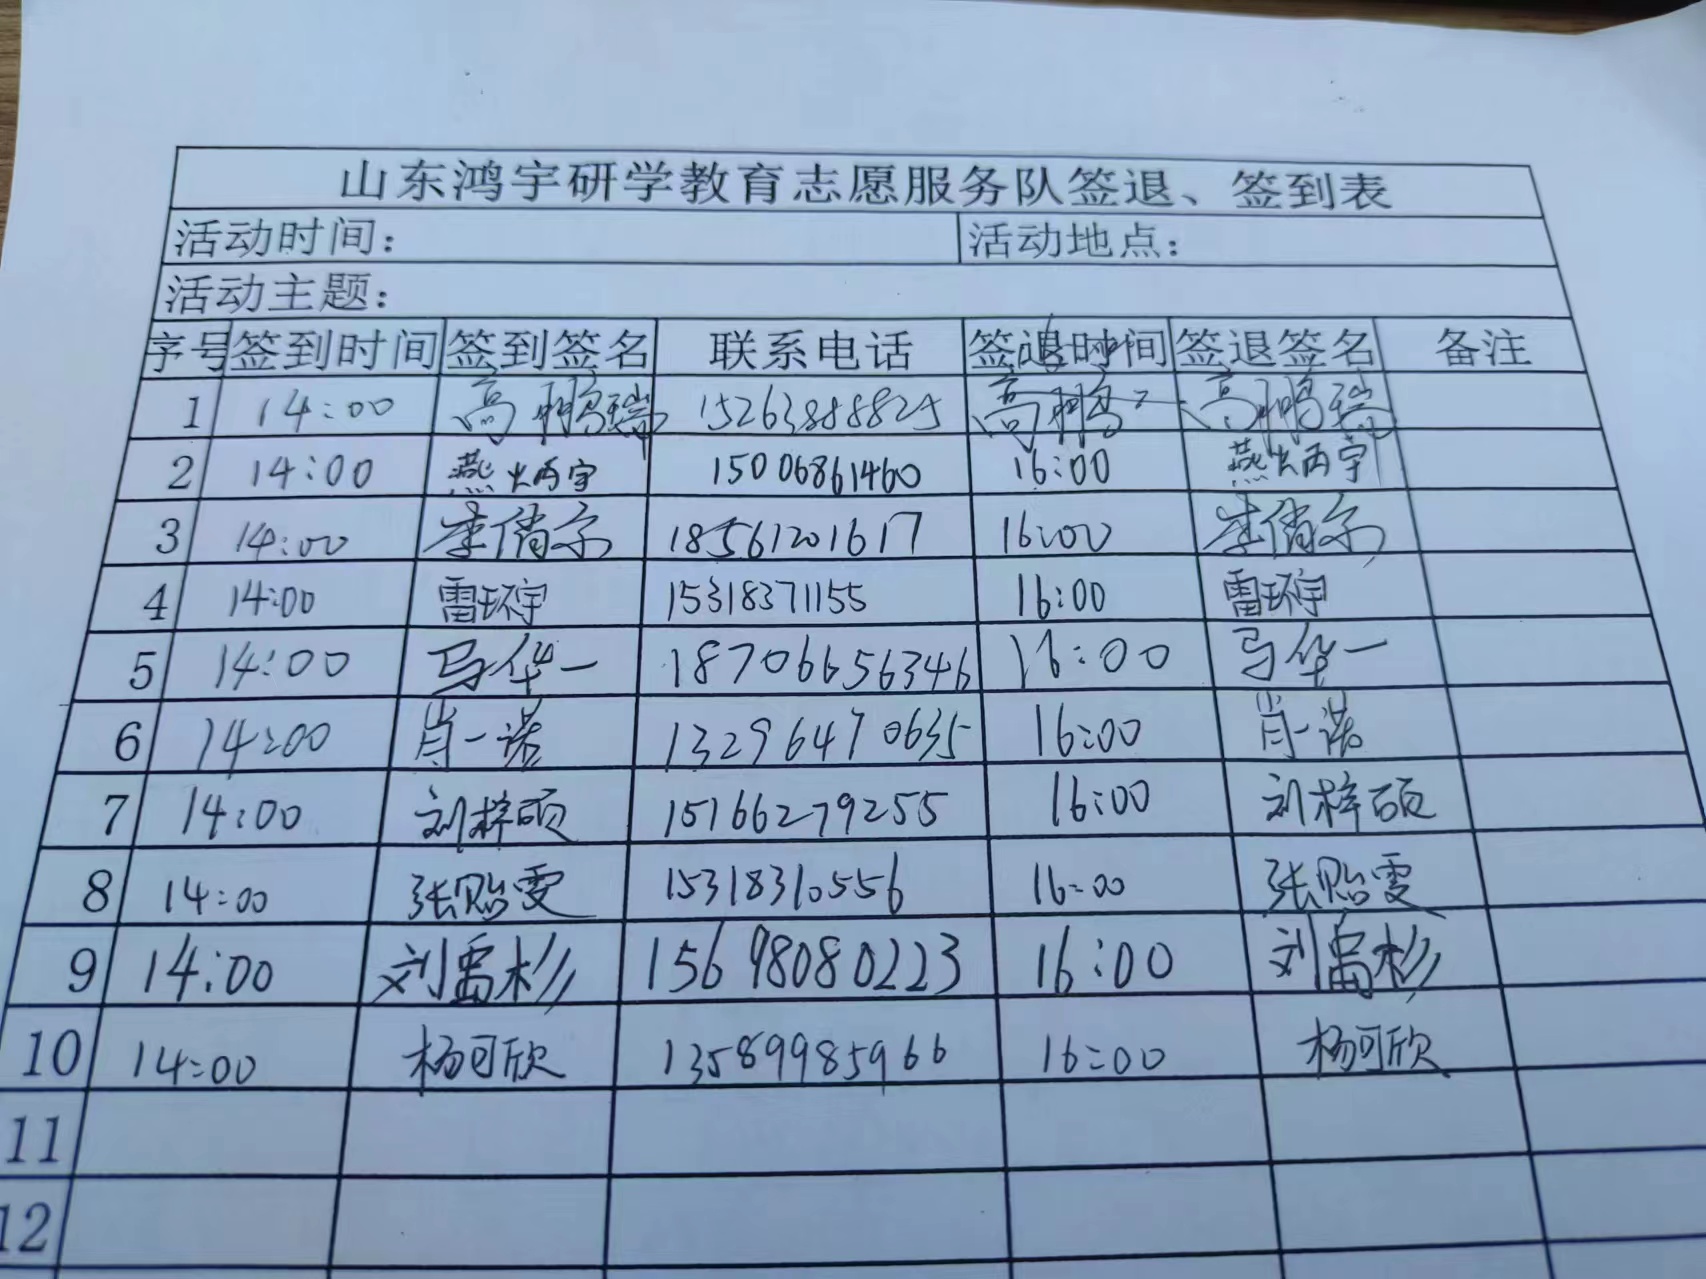 山东鸿宇研学教育志愿服务队签退、签到表
活动时间： 活动地点：
活动主题：
序号 签到时间 签到签名 联系电话 签退时间 签退签名 备注
1 14:00 高鹏瑞 15263888825 高鹏 高鹏瑞
2 14:00 燕炳宇 15006861460 16:00 燕炳宇
3 14:00 李倩尔 18561201617 16:00 李倩尔
4 14:00 雷环宇 15318371155 16:00 雷环宇
5 14:00 马华一 18706656346 16:00 马华一
6 14:00 肖一诺 13296470635 16:00 肖一诺
7 14:00 刘梓硕 15166279255 16:00 刘梓硕
8 14:00 张贻雯 15318310556 16:00 张贻雯
9 14:00 刘禹杉 15698080223 16:00 刘禹杉
10 14:00 杨可欣 13589985966 16:00 杨可欣
11
12